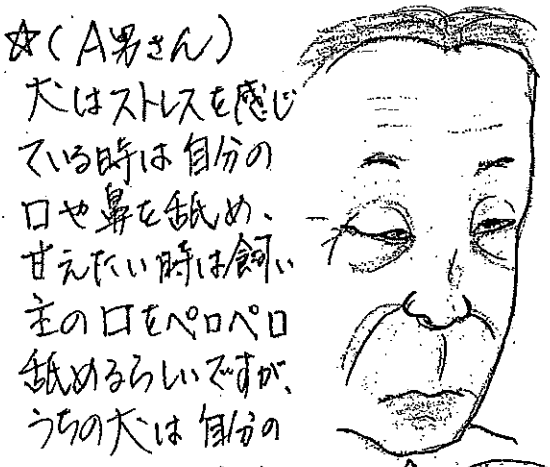 ☆(A男さん)
犬はストレスを感じ
ている時は自分の
口や鼻を舐め、
甘えたい時は飼い
主の口をペロペロ
舐めるらしいですが、
うちの犬は自分の